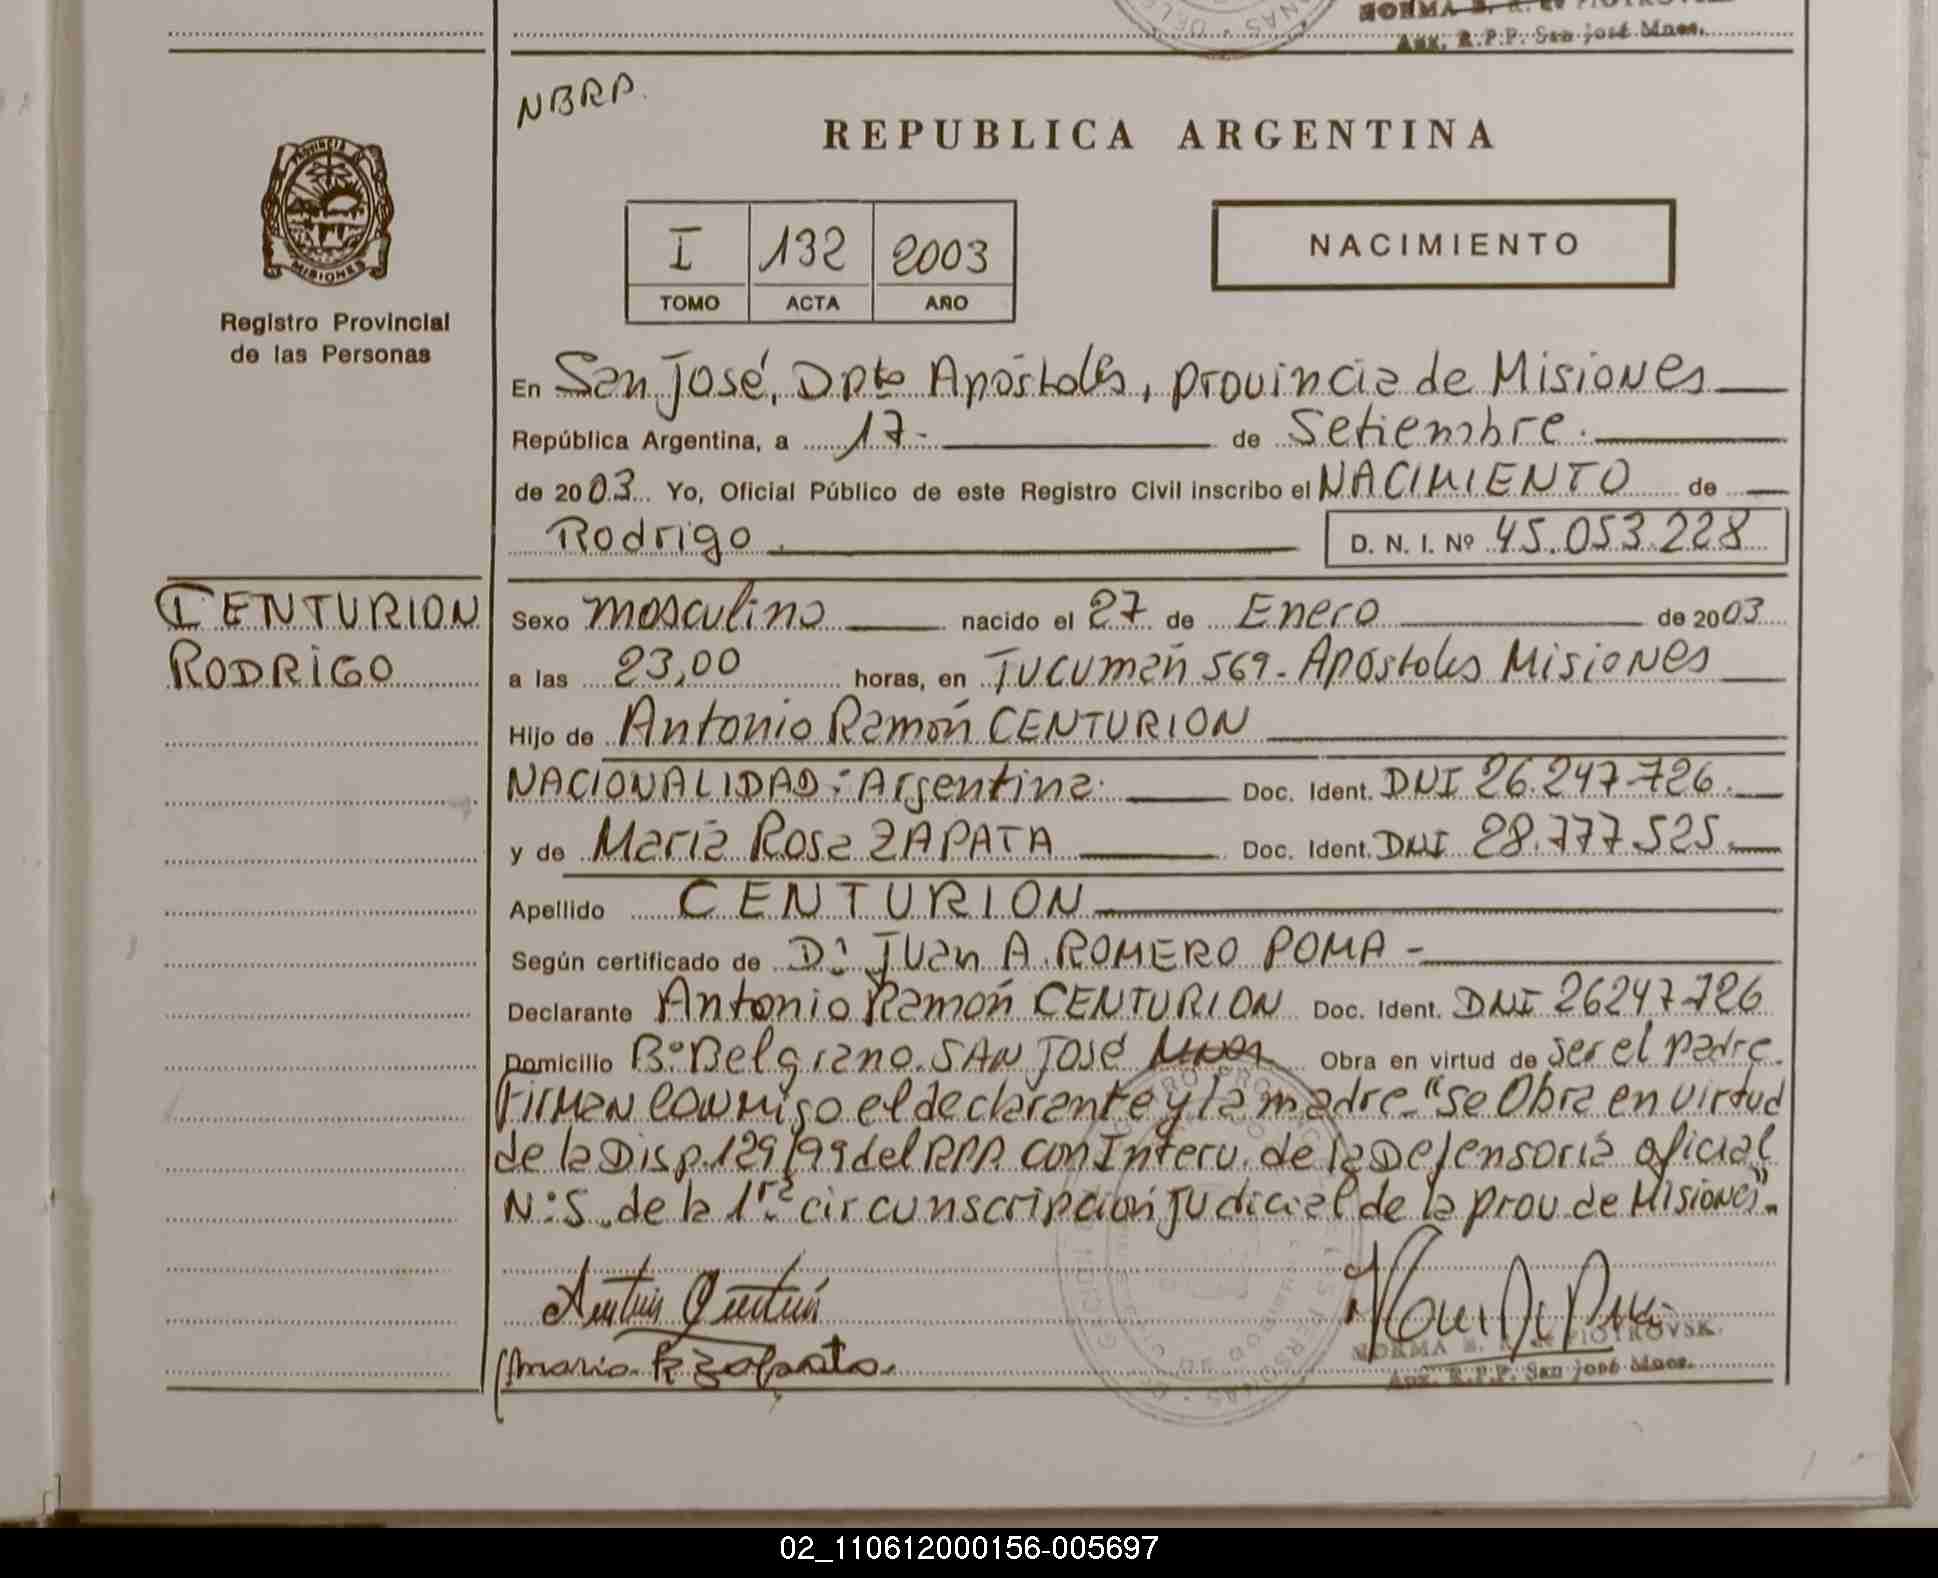 NORMA
Aux. R.P.P. San José Mnes.
NBRP.
REPUBLICA ARGENTINA
PROVINCIA DE
MISIONES
Registro Provincial
de las Personas
I 132 2003
TOMO ACTA AÑO
NACIMIENTO
En San José, Dpto Apóstoles, provincia de Misiones
República Argentina, a 17- de Setiembre.
de 2003 Yo, Oficial Público de este Registro Civil inscribo el NACIMIENTO de
Rodrigo. D. N. I. Nº 45.053.228
CENTURION
RODRIGO
Sexo masculino nacido el 27 de Enero de 2003
a las 23,00 horas, en Tucumán 569- Apóstoles Misiones
Hijo de Antonio Ramón CENTURION
NACIONALIDAD: Argentina. Doc. Ident. DNI 26.247.726.
y de María Rosa ZAPATA Doc. Ident. DNI 28.777.525.
Apellido CENTURION
Según certificado de Dr. Juan A. ROMERO POMA -
Declarante Antonio Ramón CENTURION Doc. Ident. DNI 26247.726
Domicilio Bº Belgrano. SAN José Mnes Obra en virtud de ser el padre.
Firman conmigo el declarante y la madre. "se Obra en virtud
de la Disp. 129/99 del RPP. con Interv. de la Defensoría oficial
Nº 5. de la 1ra circunscripción judicial de la prov. de Misiones".
Maria R Zapata.
NORMA PIOTROVSK
Aux. R.P.P. San José Mnes.
02_110612000156-005697